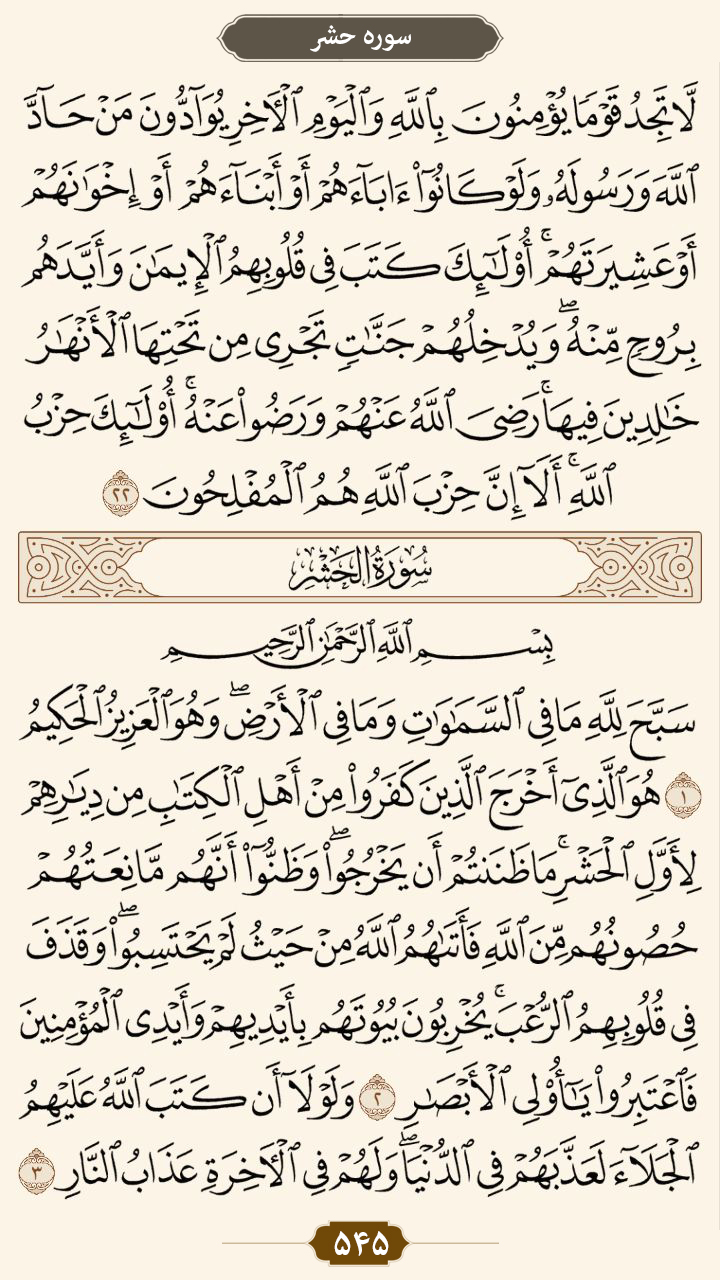 سوره حشر
لَّا تَجِدُ قَوْمًا يُؤْمِنُونَ بِٱللَّهِ وَٱلْيَوْمِ ٱلْأَخِرِ يُوَآدُّونَ مَنْ حَآدَّ
ٱللَّهَ وَرَسُولَهُۥ وَلَوْ كَانُوٓا۟ ءَابَآءَهُمْ أَوْ أَبْنَآءَهُمْ أَوْ إِخْوَٰنَهُمْ
أَوْ عَشِيرَتَهُمْ ۚ أُو۟لَٰٓئِكَ كَتَبَ فِى قُلُوبِهِمُ ٱلْإِيمَٰنَ وَأَيَّدَهُم
بِرُوحٍ مِّنْهُ ۖ وَيُدْخِلُهُمْ جَنَّٰتٍ تَجْرِى مِن تَحْتِهَا ٱلْأَنْهَٰرُ
خَٰلِدِينَ فِيهَا ۚ رَضِىَ ٱللَّهُ عَنْهُمْ وَرَضُوا۟ عَنْهُ ۚ أُو۟لَٰٓئِكَ حِزْبُ
ٱللَّهِ ۚ أَلَآ إِنَّ حِزْبَ ٱللَّهِ هُمُ ٱلْمُفْلِحُونَ ٢٢
سُورَةُ الحَشْرِ
بِسْمِ ٱللَّهِ ٱلرَّحْمَٰنِ ٱلرَّحِيمِ
سَبَّحَ لِلَّهِ مَا فِى ٱلسَّمَٰوَٰتِ وَمَا فِى ٱلْأَرْضِ ۖ وَهُوَ ٱلْعَزِيزُ ٱلْحَكِيمُ
١ هُوَ ٱلَّذِىٓ أَخْرَجَ ٱلَّذِينَ كَفَرُوا۟ مِنْ أَهْلِ ٱلْكِتَٰبِ مِن دِيَٰرِهِمْ
لِأَوَّلِ ٱلْحَشْرِ ۚ مَا ظَنَنتُمْ أَن يَخْرُجُوا۟ ۖ وَظَنُّوٓا۟ أَنَّهُم مَّانِعَتُهُمْ
حُصُونُهُم مِّنَ ٱللَّهِ فَأَتَىٰهُمُ ٱللَّهُ مِنْ حَيْثُ لَمْ يَحْتَسِبُوا۟ ۖ وَقَذَفَ
فِى قُلُوبِهِمُ ٱلرُّعْبَ ۚ يُخْرِبُونَ بُيُوتَهُم بِأَيْدِيهِمْ وَأَيْدِى ٱلْمُؤْمِنِينَ
فَٱعْتَبِرُوا۟ يَٰٓأُو۟لِى ٱلْأَبْصَٰرِ ٢ وَلَوْلَآ أَن كَتَبَ ٱللَّهُ عَلَيْهِمُ
ٱلْجَلَآءَ لَعَذَّبَهُمْ فِى ٱلدُّنْيَا ۖ وَلَهُمْ فِى ٱلْأَخِرَةِ عَذَابُ ٱلنَّارِ ٣
۵۴۵